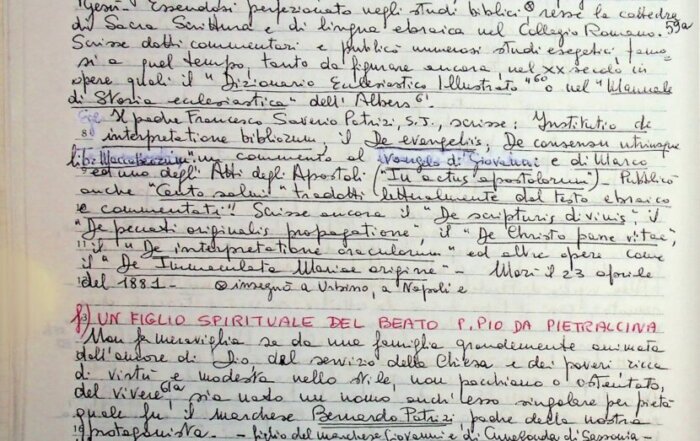 Gesù. Essendosi perfezionato negli studi biblici, ⊗ resse la cattedra 59a
di Sacra Scrittura e di lingua ebraica nel Collegio Romano.
Scrisse dotti commentari e pubblicò numerosi studi esegetici, famo-
si a quel tempo, tanto da figurare ancora, nel XX secolo in
opere quali il "Dizionario Ecclesiastico Illustrato" 60 o nel "Manuale
di Storia ecclesiastica" dell'Albers 61.
Il padre Francesco Saverio Patrizi, S.J., scrisse: Institutio di
8 interpretatione bibliorum, il De evangeliis, De consensu utriusque
libri Maccabeorum, un commento al Vangelo di Giovanni e di Marco
ed uno degli Atti degli Apostoli ("In actus apostolorum") - Pubblicò
anche "Cento salmi" tradotti letteralmente dal testo ebraico
e commentati". Scrisse ancora il "De scripturis divinis" il
"De peccati originalis propagatione", il "De Christo pane vitae",
11 il "De interpretatione oraculorum" ed altre opere come
il "De Immaculata Mariae origine" - Morì il 23 aprile
del 1881 - ⊗ insegnò a Urbino, a Napoli e
f) UN FIGLIO SPIRITUALE DEL BEATO P. PIO DA PIETRALCINA
Non fa meraviglia se da una famiglia grandemente animata
dall'amore di Dio del servizio della Chiesa e dei poveri ricca
di virtù e modesta nello stile, non pacchiano o ostentato,
del vivere 61a, sia nato un uomo anch'esso singolare per pietà
quale fu il marchese Bernardo Patrizi, padre della nostra
protagonista. - figlio del marchese Giovanni e di Cunegonda di Sassonia -